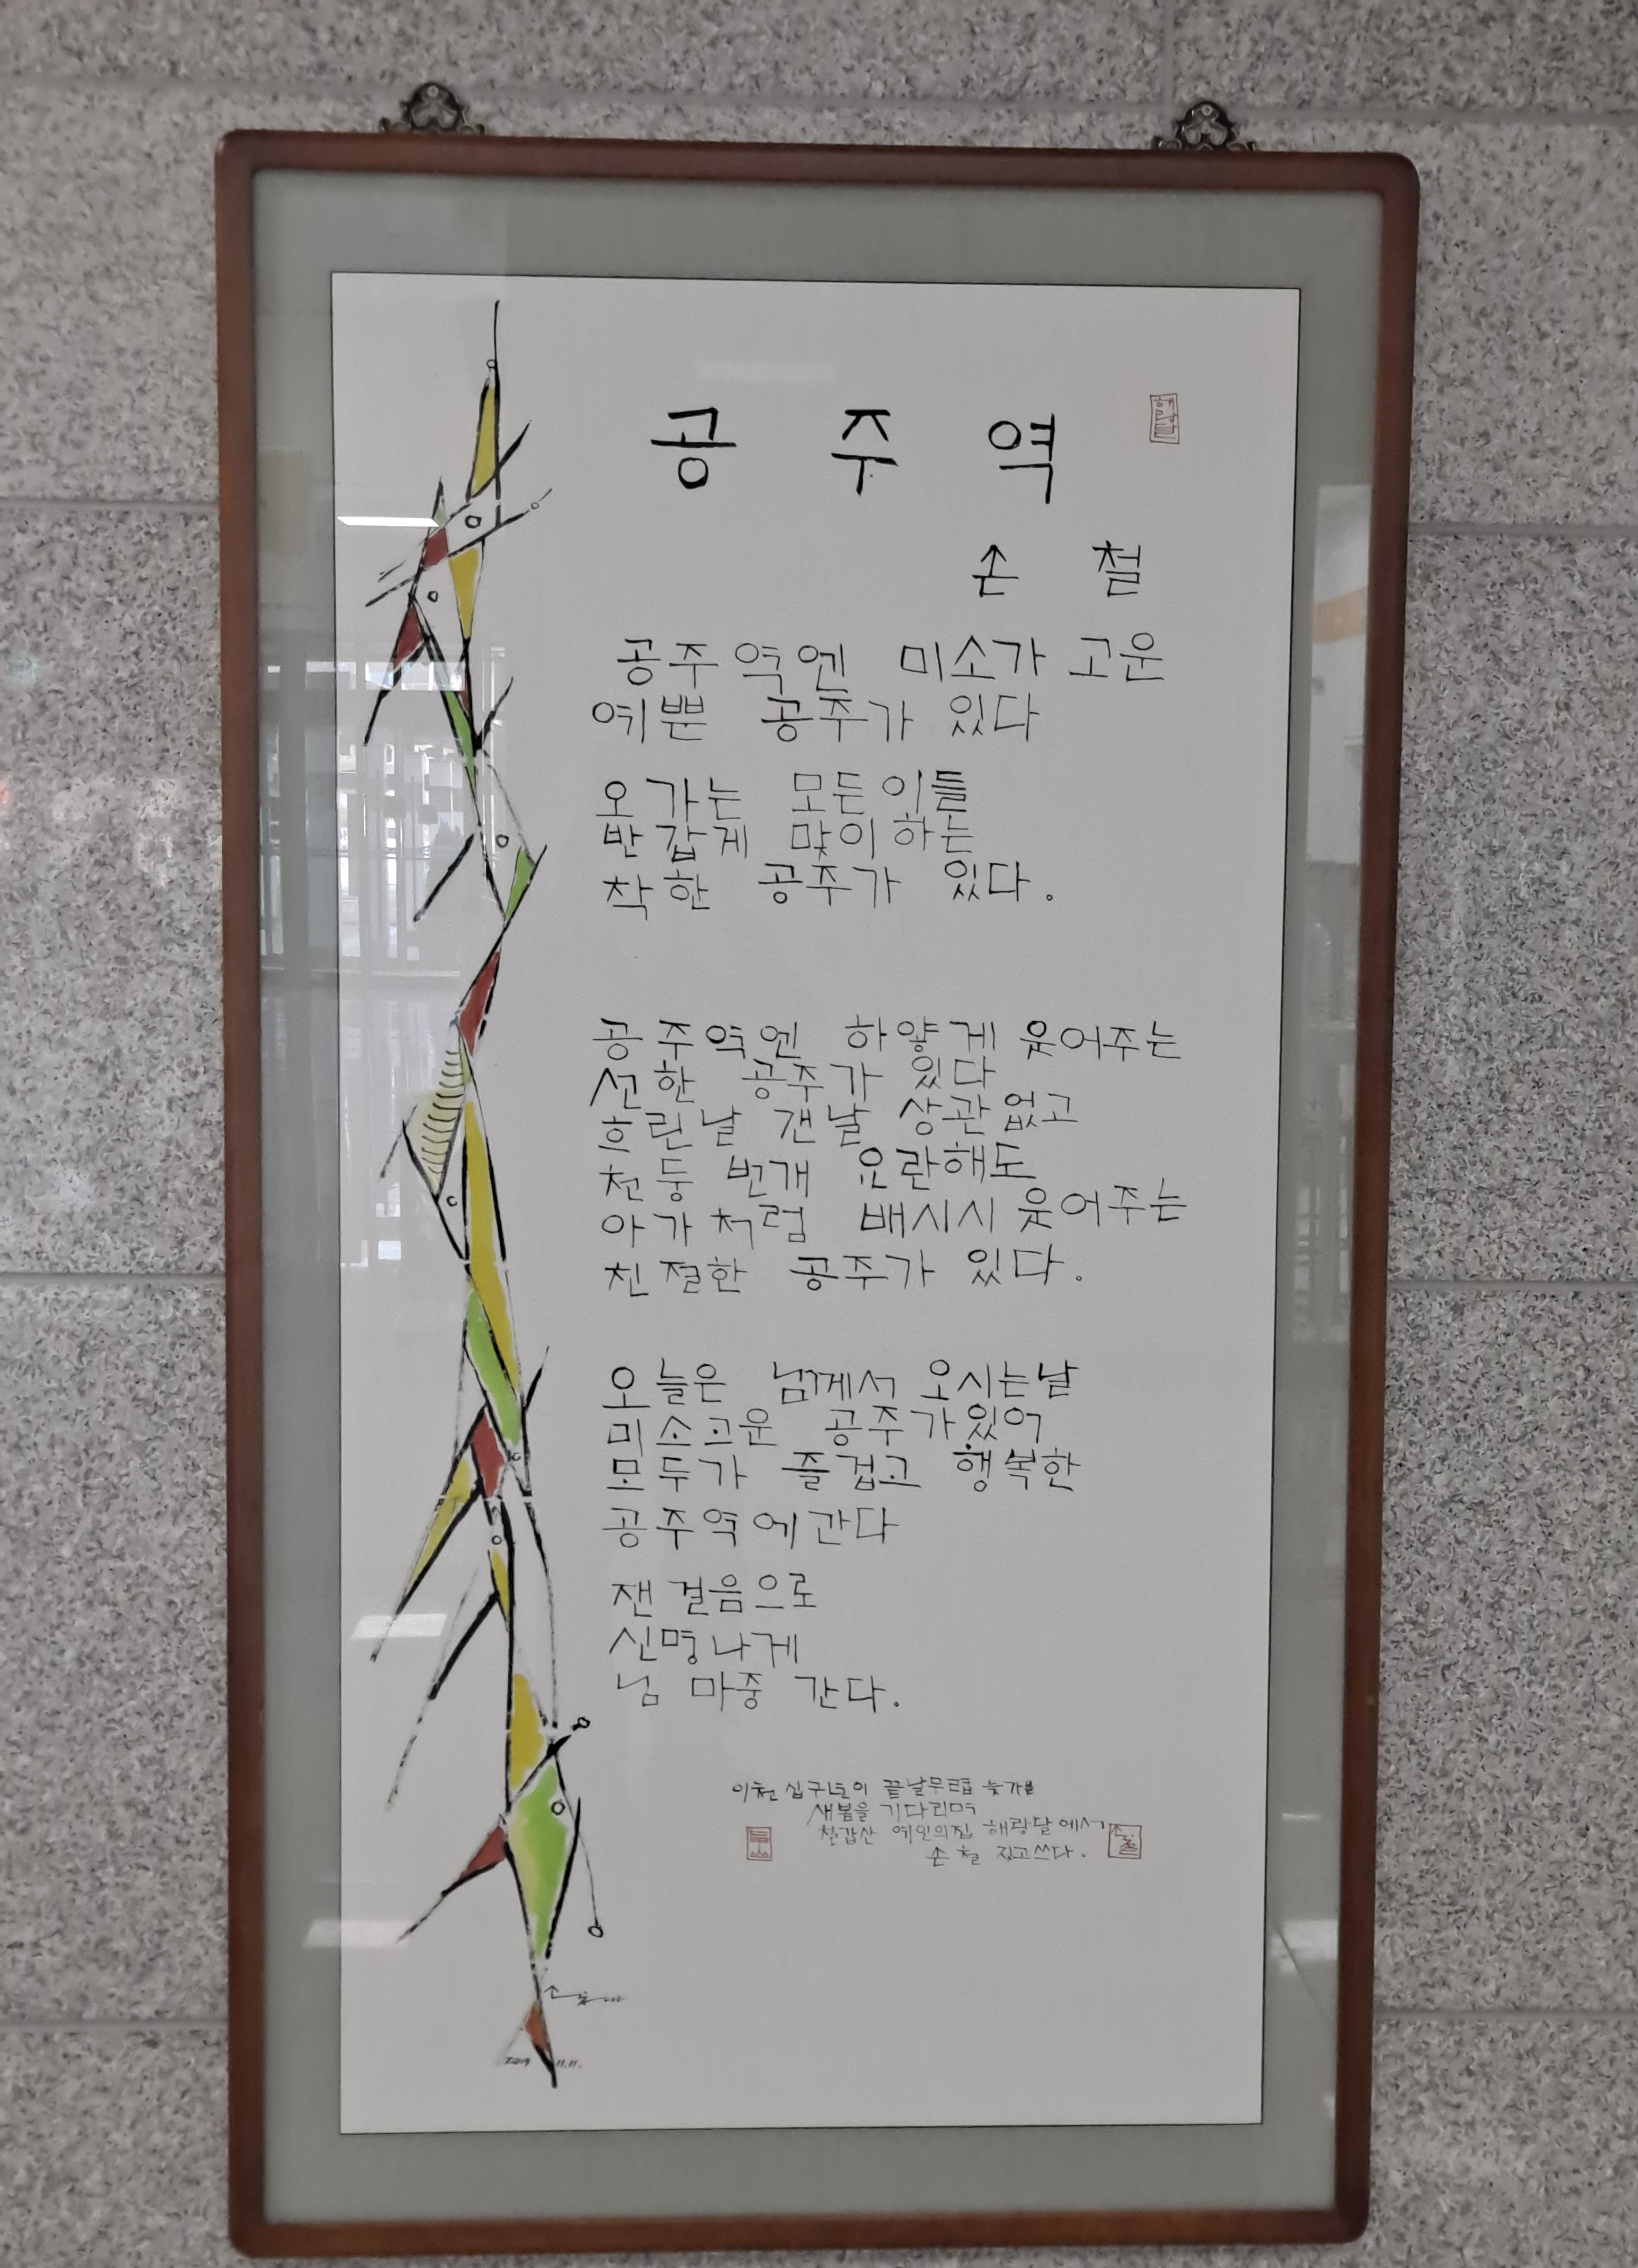 공 주 역
해랑달
손 철
공주역엔 미소가 고운
예쁜 공주가 있다
오가는 모든이들
반갑게 맞이하는
착한 공주가 있다.
공주역엔 하얗게 웃어주는
선한 공주가 있다
흐린날 갠날 상관없고
천둥 번개 요란해도
아가처럼 배시시 웃어주는
친절한 공주가 있다.
오늘은 님께서 오시는날
미소고운 공주가있어
모두가 즐겁고 행복한
공주역에간다
잰걸음으로
신명나게
님 마중 간다.
이천십구년의 끝날무렵 늦가을
새봄을 기다리며
칠갑산 예인의집 해랑달에서
손철 짓고쓰다.
2019 11.11.